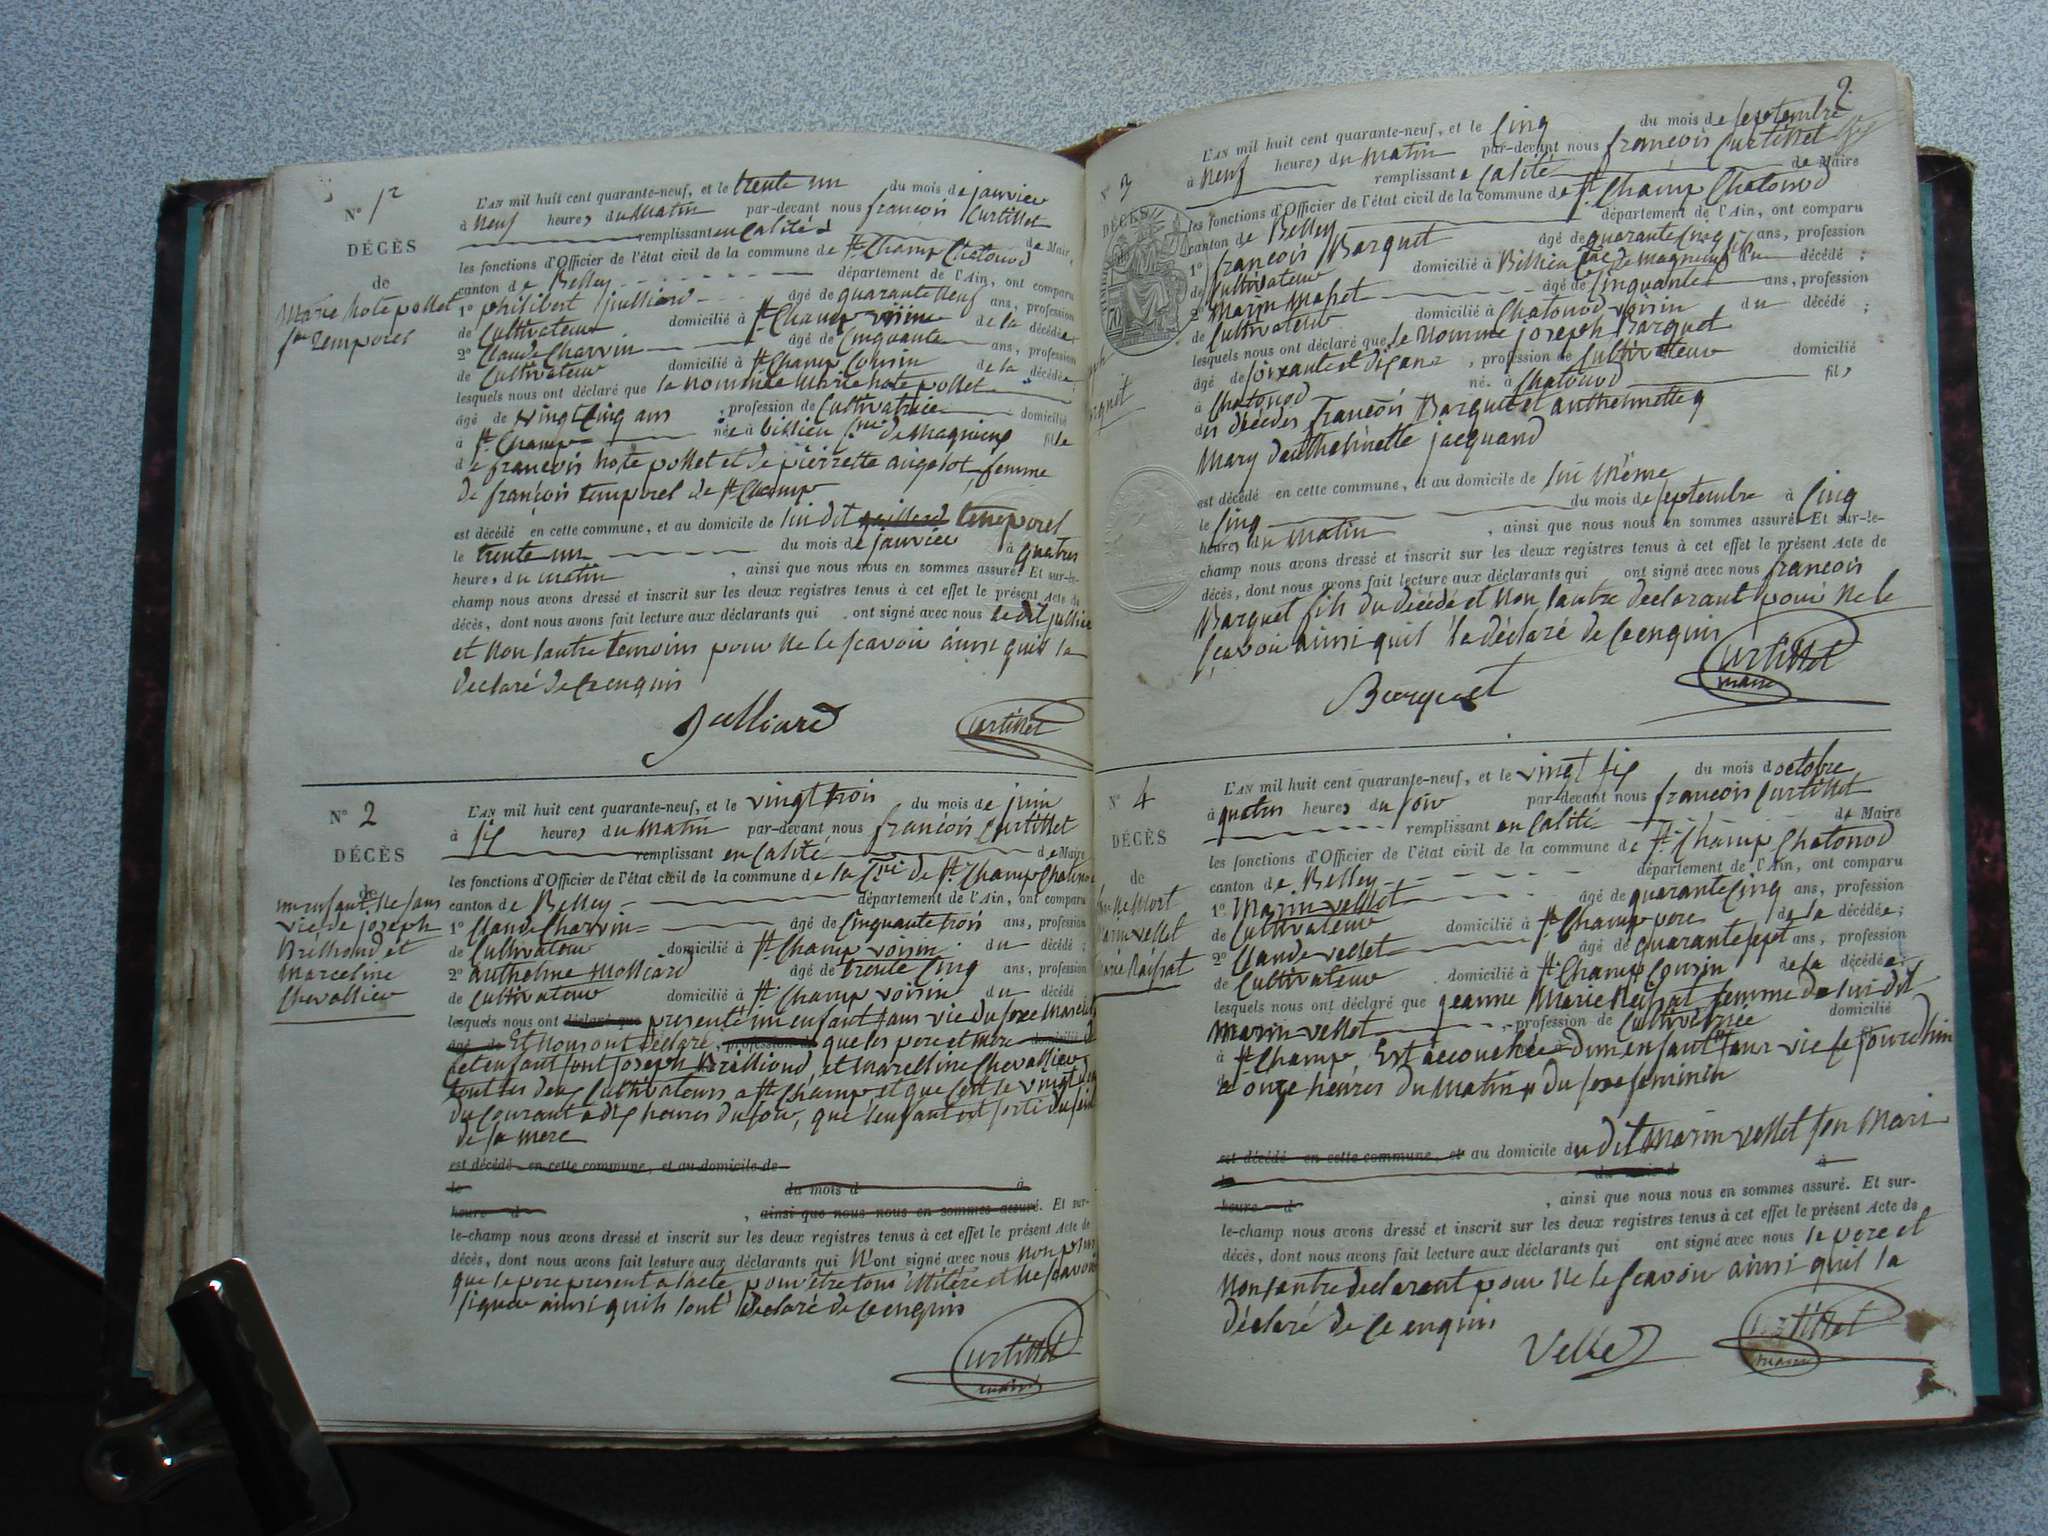 N° 1er
DÉCÈS
de
Marie hote pollet
fme Temporel
L'AN mil huit cent quarante-neuf, et le trente un du mois de janvier
à neuf heures du matin par-devant nous françois Curtillet
remplissant en calité de Maire
les fonctions d'Officier de l'état civil de la commune de St Champ Chatonod
canton de Belley département de l'Ain, ont comparu
1° philibert julliard âgé de quarante neuf ans, profession
de Cultivateur domicilié à St Champ voisin de la décédée
2° Claude Charvin âgé de Cinquante ans, profession
de Cultivateur domicilié à St Champ Cousin de la décédée
lesquels nous ont déclaré que la nommée Marie hote pollet
âgé de vingt Cinq ans , profession de Cultivatrice domicilié
à St Champ née à billieu Cne de Magnieu fille
de françois hote pollet et de pierrette femme
de françois temporel de St Champ
est décédé en cette commune, et au domicile de lui dit temporel
le trente un du mois de janvier à quatres
heures du matin , ainsi que nous nous en sommes assuré. Et sur-le-
champ nous avons dressé et inscrit sur les deux registres tenus à cet effet le présent Acte de
décès, dont nous avons fait lecture aux déclarants qui ont signé avec nous le dit
et non lautre temoins pour ne le scavoir ainsi quil la
declaré de ce enquis
Julliard Curtillet
N° 2
DÉCÈS
de
un enfant né sans
vie de joseph
Brilliond et
Marceline
Chevallier
L'AN mil huit cent quarante-neuf, et le vingt trois du mois de juin
à six heures du matin par-devant nous françois Curtillet
remplissant en calité de Maire
les fonctions d'Officier de l'état civil de la commune de la Cne de St Champ
canton de Belley département de l'Ain, ont comparu
1° Claude Charvin âgé de Cinquante trois ans, profession
de Cultivateur domicilié à St Champ voisin du décédé ;
2° anthelme Molliard âgé de trente Cinq ans, profession
de Cultivateur domicilié à St Champ voisin du décédé
lesquels nous ont déclaré que presenté un enfant sans vie du sexe
âgé de Et nous ont déclaré, profession de que les pere et mere domicilié
det enfant sont joseph Brilliond, et Marcelline Chevallier
tout les deux Cultivateurs a St Champ et que Cest le vingt
du Courant a dix heures du soir, que lenfant est sorti du sein
de sa mere
est décédé en cette commune, et au domicile de
le du mois d à
heure d , ainsi que nous nous en sommes assuré. Et sur-
le-champ nous avons dressé et inscrit sur les deux registres tenus à cet effet le présent Acte de
décès, dont nous avons fait lecture aux déclarants qui n'ont signé avec nous non plus
que le pere present a lacte pour etre tous illitéré et ne scavoir
signer ainsi quils lont declaré de ce enquis
Curtillet
maire
2
N° 3
DÉCÈS
L'AN mil huit cent quarante-neuf, et le Cinq du mois de septembre
à neuf heures du matin par-devant nous françois Curtillet
remplissant e calité de Maire
les fonctions d'Officier de l'état civil de la commune de St Champ Chatonod
canton de Belley département de l'Ain, ont comparu
1° françois Barquet âgé de quarante Cinq ans, profession
de Cultivateur domicilié à Billieu Cne de magnieu fils du décédé ;
2° Marin Masset âgé de Cinquante ans, profession
de Cultivateur domicilié à Chatonod voisin du décédé ;
lesquels nous ont déclaré que le nommé joseph Barquet
âgé de soixante et dix ans , profession de Cultivateur domicilié
à Chatonod né à Chatonod fils
des décédés françois Barquet et anthelmette
Mary danthelmette jacquand
est décédé en cette commune, et au domicile de lui même
le Cinq du mois de septembre à Cinq
heures du matin , ainsi que nous nous en sommes assuré. Et sur-le-
champ nous avons dressé et inscrit sur les deux registres tenus à cet effet le présent Acte de
décès, dont nous avons fait lecture aux déclarants qui ont signé avec nous françois
Barquet fils du décédé et non lautre declarant pour ne le
scavoir ainsi quil la déclaré de ce enquis
Barquet Curtillet
maire
N° 4
DÉCÈS
de
L'AN mil huit cent quarante-neuf, et le vingt six du mois doctobre
à quatres heures du soir par-devant nous françois Curtillet
remplissant en calité de Maire
les fonctions d'Officier de l'état civil de la commune de St Champ Chatonod
canton de Belley département de l'Ain, ont comparu
1° Marin vellet âgé de quarante Cinq ans, profession
de Cultivateur domicilié à St Champ pere de la décédée ;
2° Claude vellet âgé de quarante sept ans, profession
de Cultivateur domicilié à St Champ Cousin de la décédée ;
lesquels nous ont déclaré que jeanne Marie femme de lui dit
Marin vellet , profession de Cultivatrice domicilié
à St Champ, Est accouchée dun enfant sans vie ce jourdhui
a onze heures du matin du sexe feminin
est décédé en cette commune, et au domicile du dit Marin vellet son Mari
le du mois d à
heure d , ainsi que nous nous en sommes assuré. Et sur-
le-champ nous avons dressé et inscrit sur les deux registres tenus à cet effet le présent Acte de
décès, dont nous avons fait lecture aux déclarants qui ont signé avec nous le pere et
non lautre declarant pour ne le scavoir ainsi quil la
déclaré de ce enquis
Vellet Curtillet
maire